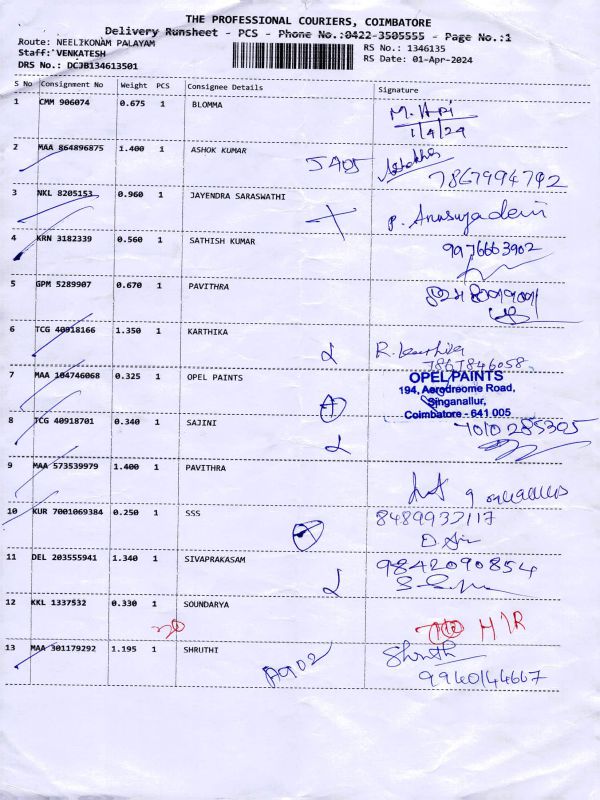 THE PROFESSIONAL COURIERS, COIMBATORE
Delivery Runsheet - PCS - Phone No.:0422-3505555 - Page No.:1
Route: NEELIKONAM PALAYAM
RS No.: 1346135
Staff: VENKATESH
RS Date: 01-Apr-2024
DRS No.: DCJB134613501
S No Consignment No Weight PCS Consignee Details Signature
1 CMM 906074 0.675 1 BLOMMA
1/4/24
2 MAA 864896875 1.400 1 ASHOK KUMAR
7867994792
3 NKL 8205153 0.960 1 JAYENDRA SARASWATHI P. Anusuyadevi
4 KRN 3182339 0.560 1 SATHISH KUMAR 9976663902
5 GPM 5289907 0.670 1 PAVITHRA
6 TCG 40918166 1.350 1 KARTHIKA R. Karthika
7867846058
7 MAA 104746068 0.325 1 OPEL PAINTS OPEL PAINTS
194, Aerodreome Road,
Singanallur,
Coimbatore - 641 005
8 TCG 40918701 0.340 1 SAJINI 7010285325
9 MAA 573539979 1.400 1 PAVITHRA
10 KUR 7001069384 0.250 1 SSS 8489933117
11 DEL 203555941 1.340 1 SIVAPRAKASAM 9842090854
12 KKL 1337532 0.330 1 SOUNDARYA
H/R
13 MAA 301179292 1.195 1 SHRUTHI Shruthi
A902 9940144667